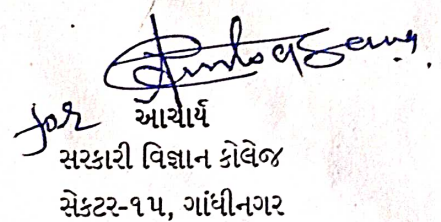 for આચાર્ય
સરકારી વિજ્ઞાન કોલેજ
સેકટર-૧૫, ગાંધીનગર